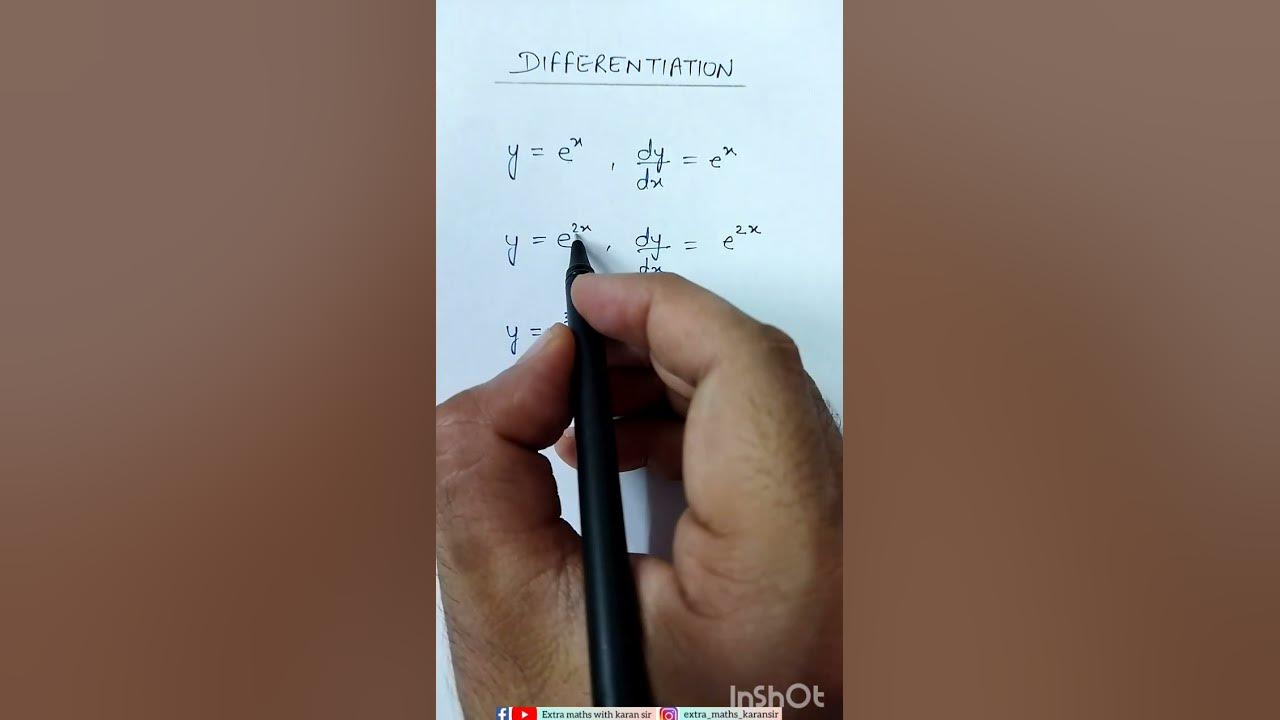 DIFFERENTIATION
y = eˣ , dy/dx = eˣ
y = e²ˣ , dy/dx = e²ˣ
y =
InShOt
Extra maths with karan sir extra_maths_karansir